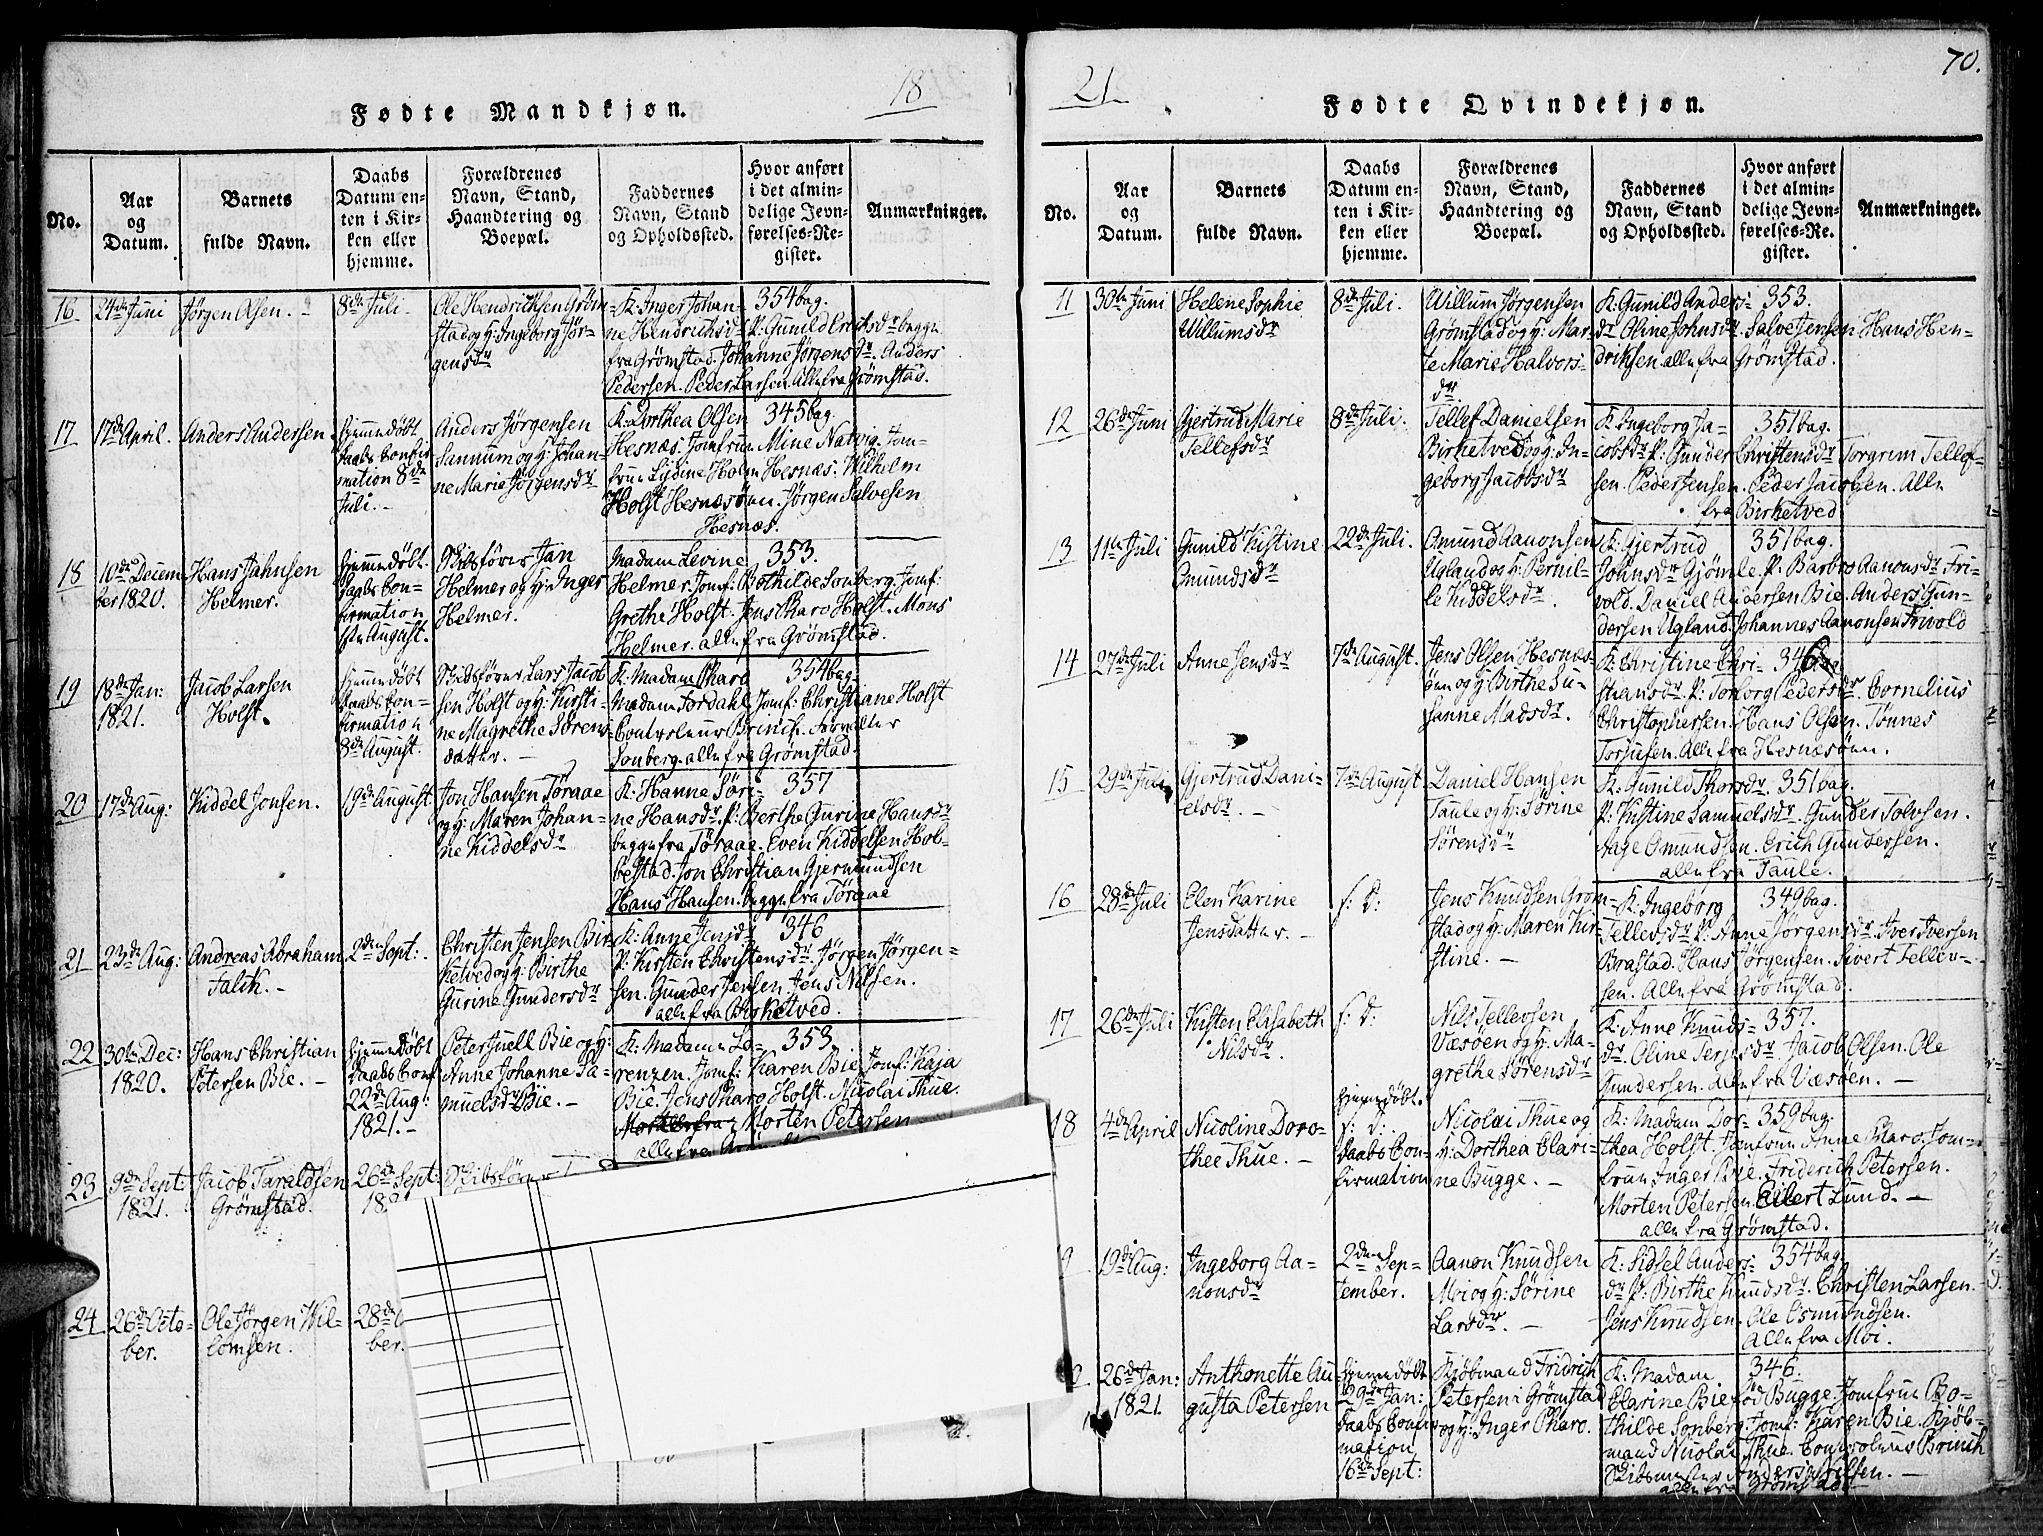 18
Fødte Mandkjøn.
No.
Aar
og
Datum.
Barnets
fulde Navn.
Daabs
Datum en-
ten i Kir-
ken eller
hjemme.
Forældrenes
Navn, Stand,
Haandtering og
Boepæl.
Faddernes
Navn, Stand
og Opholdssted.
Hvor anført
i det almin-
delige Jevn-
førelses-Re-
gister.
Anmærkninger.
16
24de Juni
Jørgen Olsen.
8de Juli.
Ole Hendrichsen Grøm-
stad og H: Ingeborg Jør-
gensdr
K. Inger Johan-
ne Hendrichsdr P: Gunild Erichsdr begge
fra Grømstad. Johanne Jørgensdr. Anders
Pedersen. Peder Larsen. Alle fra Grømstad.
354 bag.
17
17de April.
Anders Andersen
Hjemmedøbt
Daabs Confir
mation 8de
Juli.
Anders Jørgensen
Sannum og H: Johan-
ne Marie Jørgensdr
K: Dorthea Olsen
Hesnæs. Jomfrue Mine Natvig. Jom-
frue Lisdine Holm Hesnæs. Wilhelm
Holst Hesnæsøen. Jørgen Salvesen
Hesnæs.
345 bag.
18
10de Decem
ber 1820.
Hans Jahnsen
Helmer.
Hjemmedøbt.
Daabs Con-
firmation
1ste August.
Skibsfører Jan
Helmer og H: Inger
Helmer.
Madam Levine
Helmer. Jomf: Bothilde Sonberg. Jomf:
Grethe Holst. Jens Pharo Holst. Mons
Helmer. alle fra Grømstad.
353.
19
18de Jan:
1821.
Jacob Larsen
Holst.
Hjemmedøbt
Daabs Con-
firmation
8de August.
Skibsfører Lars Jacob
sen Holst og H: Kirsti-
ne Magrethe Sørens-
datter.
K: Madam Pharo
Madam Tordahl. Jomf: Christiane Holst
Controleur Brinch.
Sonberg. alle fra Grømstad.
354 bag.
20
17de Aug:
Kiddel Jonsen.
19de August.
Jon Hansen Töraae
og H: Maren Johan-
ne Kiddelsdr
K: Hanne Söri-
ne Hansdr. P: Berthe Gurine Hansdr
begge fra Töraae. Even Kiddelsen Hob-
bestad. Jon Christian Gjermundsen
Hans Hansen. begge fra Töraae
357
21
23de Aug:
Andreas Abraham
Falck.
2den Sept:
Christen Jensen Bir-
ketved og H: Birthe
Gurine Gundersdr
K: Anne Jensdr
P: Kirsten Christensdr. Jørgen Jørgen-
sen. Gunder Jensen. Jens Nilsen.
alle fra Birketved.
346
22
30te Dec:
1820.
Hans Christian
Petersen Bie.
Hjemmedøbt
Daabs Conf
22de Aug:
1821.
Peter Juell Bie og H:
Anne Johanne Sa-
muelsdr Bie.
K: Madame Lo-
renzen. Jomf: Karen Bie. Jomf: Kaja
Bie. Jens Pharo Holst. Nicolai Thue.
Morten Petersen
alle fra
353.
23
9de Sept:
1821.
Jacob Taraldsen
Grømstad.
26de Sept:
Skibsfører
24
26de Octo-
ber.
Ole Jørgen Wil-
lomsen.
28de
ber.
21
70.
Fødte Qvindekjøn.
No.
Aar
og
Datum.
Barnets
fulde Navn.
Daabs
Datum en-
ten i Kir-
ken eller
hjemme.
Forældrenes
Navn, Stand,
Haandtering og
Boepæl.
Faddernes
Navn, Stand
og Opholdssted.
Hvor anført
i det almin-
delige Jevn-
førelses-Re-
gister.
Anmærkninger.
11
30te Juni
Helene Sophie
Willumsdr
8de Juli.
Willum Jørgensen
Grømstad og H: Mar-
te Marie Halvors-
dr
K: Gunild Anders-
dr. Oline Johnsdr. Salve Jensen Hans Hen-
drichsen alle fra Grømstad.
353.
12
26de Juni
Gjertrud Marie
Tellefsdr
8de Juli.
Tellef Danielsen
Birketved og H: In-
geborg Jacobsdr
K: Ingeborg Ja-
cobsdr P: Gunder Christensdr Torgrim Tellef-
sen. Peder Jensen. Peder Jacobsen. Alle
fra Birketved
351 bag.
13
11te Juli
Gunild Kistine
Omundsdr
22de Juli.
Omund Aanonsen
Ugland og H: Pernil-
le Kiddelsdr.
K: Gjertrud
Johnsdr Gjömle. P: Barbro Aanonsdr Fri-
vold. Daniel Andersen Bie. Anders Gun-
dersen Ugland. Johannes Aanonsen Frivold
351 bag.
14
27de Juli
Anne Jensdr
7de August.
Jens Olsen Hesnæs-
öen og H: Birthe Su-
sanne Madsdr.
K: Christine Chri-
stiansdr. P: Torborg Pedersdr. Cornelius
Christophersen. Hans Olsen. Tønnes
Torjusen. Alle fra Hesnæsöen.
346
15
29de Juli
Gjertrud Dani-
elsdr.
7de August
Daniel Hansen
Taule og H: Sørine
Sørensdr
K: Gunild Thorsdr.
P: Kistine Samuelsdr. Gunder Tolvsen.
Aage Omundsen. Erich Gundersen.
alle fra Taule.
351 bag.
16
28de Juli
Elen Karine
Jensdatter.
f: D:
Jens Knudsen Grøm-
stad og H: Maren Kir-
stine.
K: Ingeborg
Tellevsdr P: Anne Jørgensdr. Iver Iversen
Brastad. Hans Jørgensen. Sivert Tellev-
sen. Alle fra Grømstad.
349 bag.
17
26de Juli
Kisten Elisabeth
Nilsdr.
f: D:
Nils Tellevsen
Væsöen og H: Ma-
grethe Sørensdr
K: Anne Knuds-
dr. Oline Terjesdr. Jacob Olsen. Ole
Gundersen. Alle fra Væsöen.
357.
18
4de April
Nicoline Doro-
thee Thue.
Hjemmedøbt.
f: D:
Daabs Con-
firmation
Nicolai Thue og
H: Dorthea Clari-
ne Bugge.
K: Madam Dor-
thea Holst. Jomfrue Anne Pharo. Jom-
frue Inger Bie. Friderich Petersen.
Morten Petersen. Eilert Lund.
alle fra Grømstad.
359 bag.
9
19de Aug:
Ingeborg Aa-
nonsdr
2den Sep-
tember.
Aanon Knudsen
Moi og H: Sörine
Larsdr.
K: Sidsel Anders-
dr P: Birthe Knudsdr. Christen Larsen.
Jens Knudsen. Ole Osmundsen.
Alle fra Moi.
354 bag.
26de Jan:
1821.
Anthonette Au-
gusta Petersen
Hjemmedøbt
29de Jan:
Daabs Confir
mation
16de Sept:
Kjöbmand Fridrich
Petersen i Grømstad
og H: Inger Pharo.
K: Madam
Clarine Bie fød Bugge. Jomfrue Bo-
thilde Sonberg. Jomf: Karen Bie. Kjöb-
mand Nicolai Thue. Controleur Brinch
Skibsmester Anders Nilsen.
alle fra Grömstad
346.